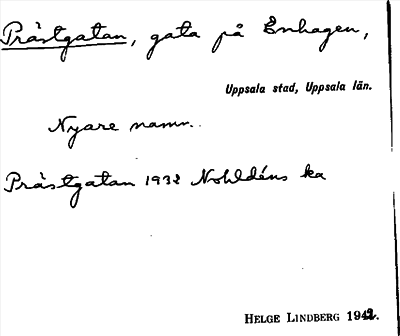 Prästgatan, gata på Enhagen,
Uppsala stad, Uppsala län.
Nyare namn.
Prästgatan 1932 Nohldéns ka
HELGE LINDBERG 1942.